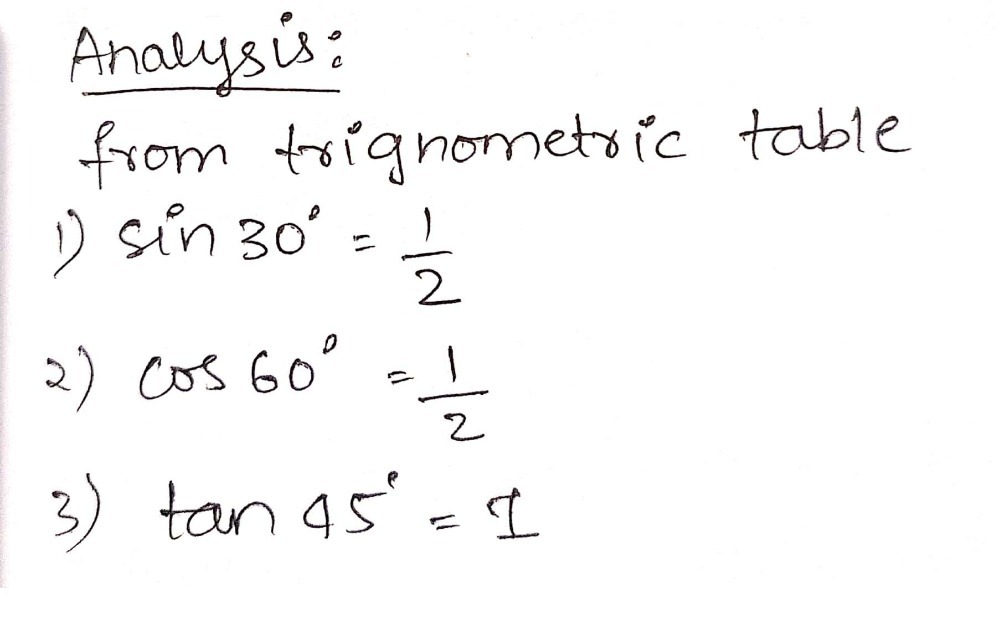 Analysis:
from trignometric table
1) sin 30° = 1/2
2) cos 60° = 1/2
3) tan 45° = 1